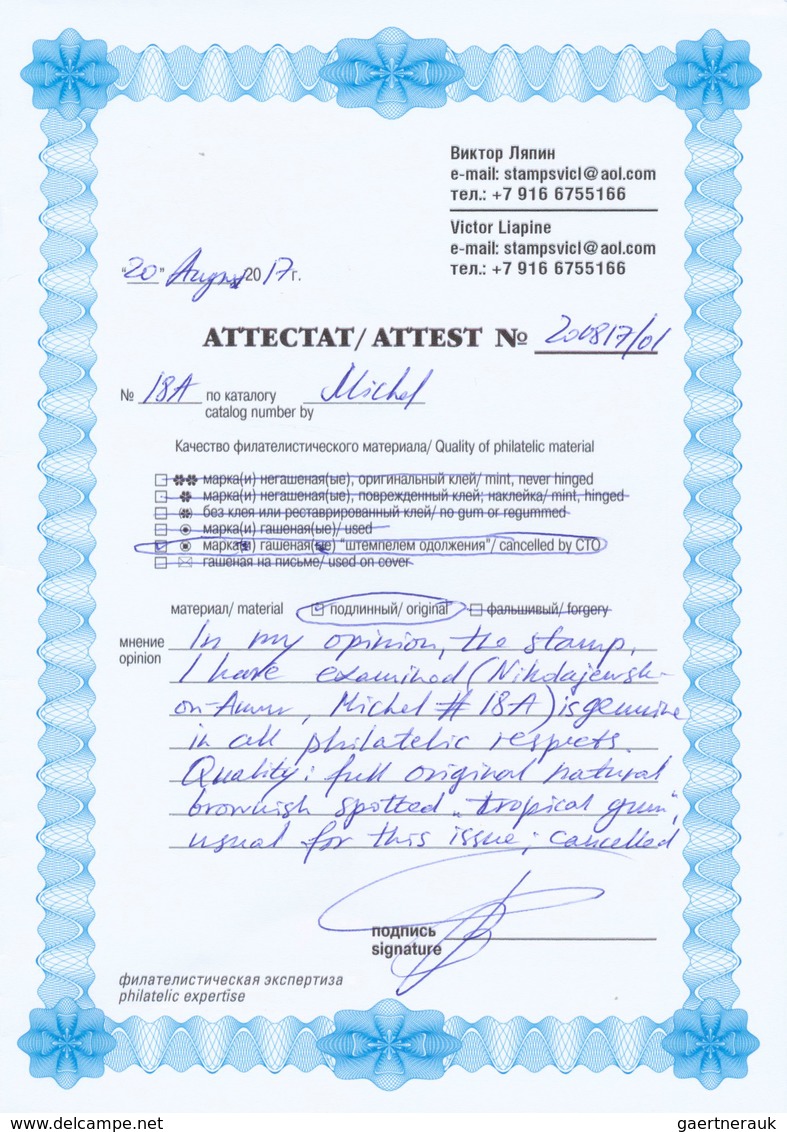 Виктор Ляпин
e-mail: stampsvicl@aol.com
тел.: +7 916 6755166
Victor Liapine
e-mail: stampsvicl@aol.com
тел.: +7 916 6755166
"20" August 2017г.
АТТЕСТАТ/ ATTEST № 200817/01
№ 18A по каталогу Michel
catalog number by
Качество филателистического материала/ Quality of philatelic material
марка(и) негашеная(ые), оригинальный клей/ mint, never hinged
марка(и) негашеная(ые), поврежденный клей; наклейка/ mint, hinged
без клея или реставрированный клей/ no gum or regummed
марка(и) гашеная(ые)/ used
марка(и) гашеная(ые) "штемпелем одолжения"/ cancelled by CTO
гашеная на письме/ used on cover
материал/ material подлинный/ original фальшивый/ forgery
мнение
opinion
In my opinion, the stamp,
I have examined (Nikolajewsk-
on-Amur, Michel # 18A) is genuine
in all philatelic respects.
Quality: full original natural
brownish spotted „tropical gum",
usual for this issue; cancelled
подпись
signature
филателистическая экспертиза
philatelic expertise
www.delcampe.net
gaertnerauk